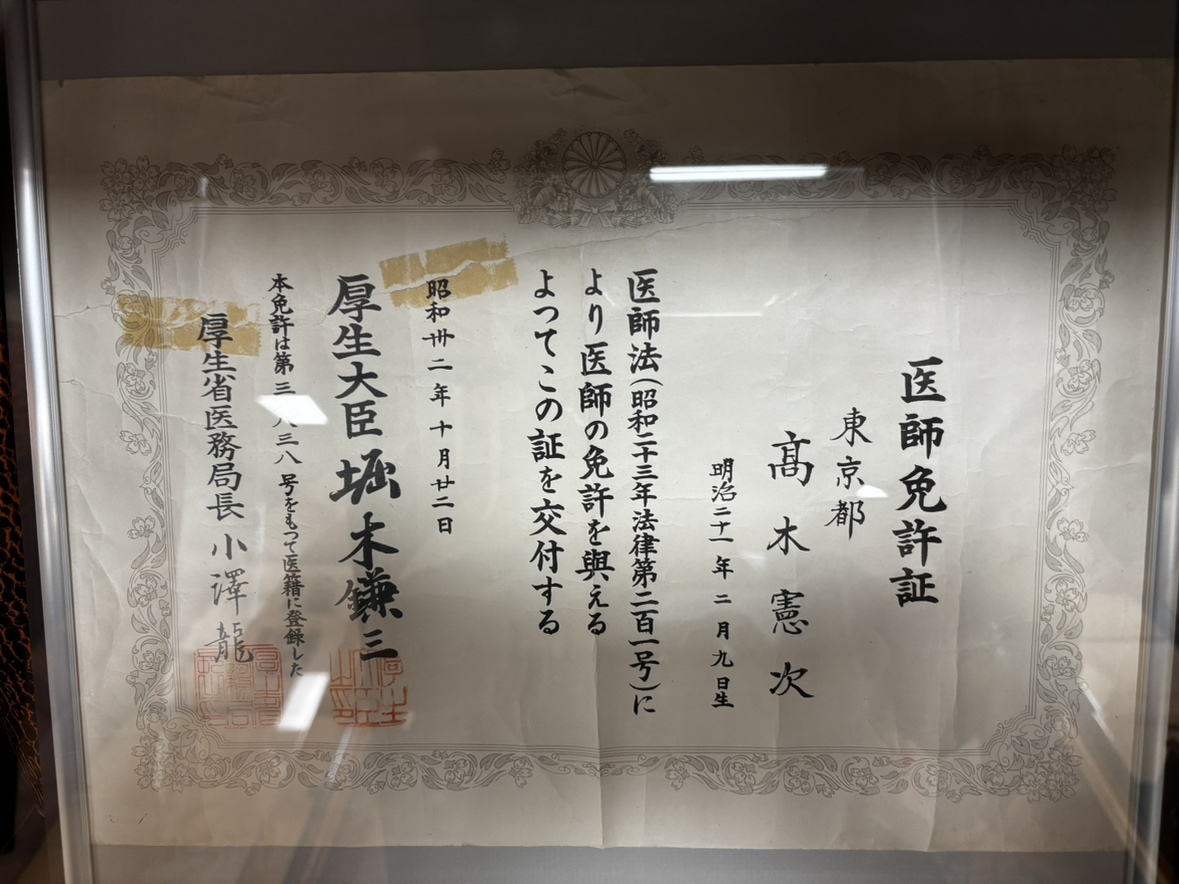 医師免許証
東京都
髙木憲次
明治二十一年二月九日生
医師法(昭和二十三年法律第二百一号)に
より医師の免許を與える
よつてこの証を交付する
昭和卅二年十月廿二日
厚生大臣堀木鎌三
本免許は第三 八三八号をもつて医籍に登録した
厚生省医務局長小澤龍